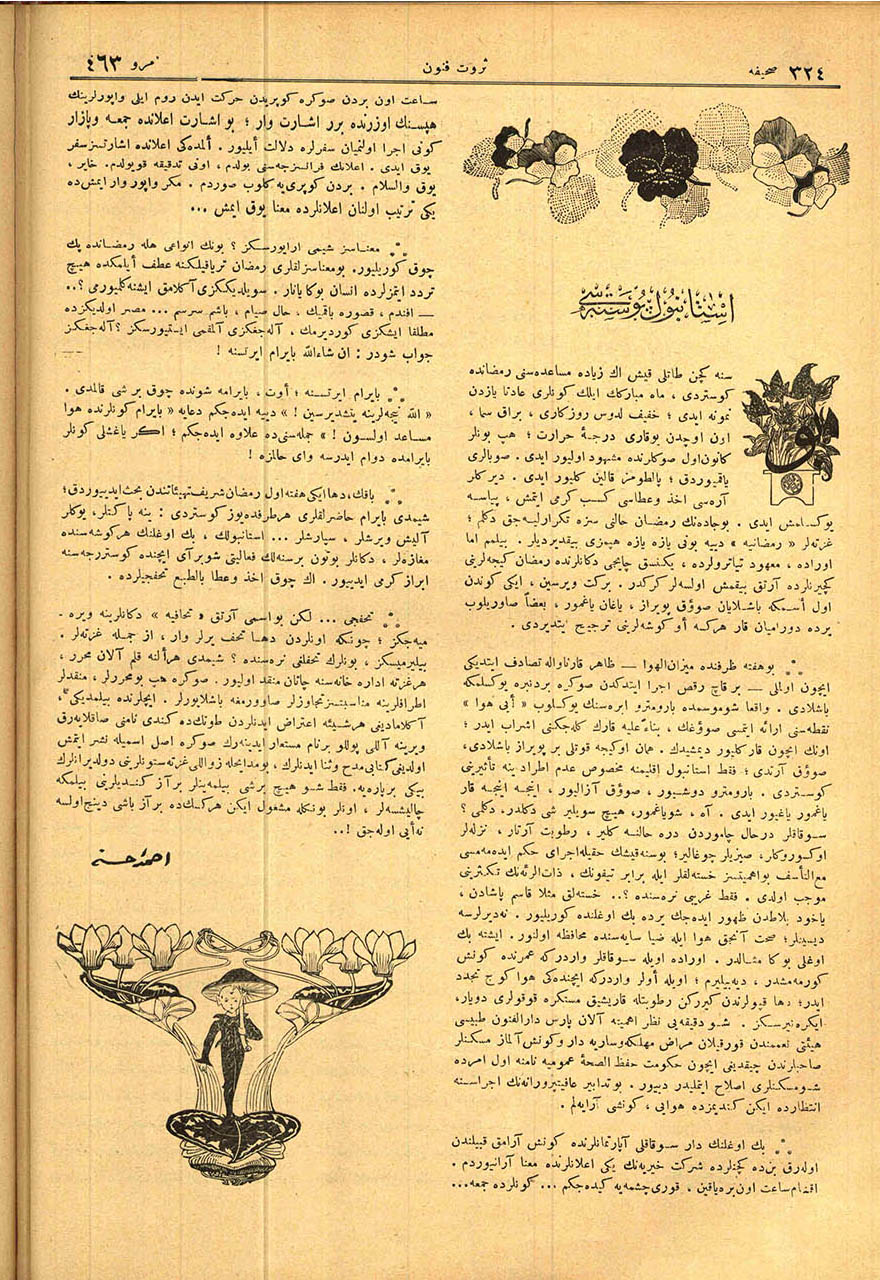 ٣٢٤ صحيفه
ثروت فنون
نمرو ٤٦٣
استانبول پوسته‌سى
سنه كچن طاتلى قيش اك زياده مساعده‌سنى رمضانده
كوستردى ، ماه مباركك ايلك كونلرى عادتا يازدن
نمونه ايدى ؛ خفيف لدوس روزكارى ، براق سما ،
اون اوچدن يوقارى درجۀ حرارت ؛ هپ بونلر
كانون اول صوكلرنده مشهود اوليور ايدى . صوبالرى
ياقيوردق ؛ پالطومز قالين كليور ايدى . ديركلر
آره‌سى اخذ وعطاسى كسب كرمى ايتمش ، پياسه
يوكسلمش ايدى . بوجاده‌نك رمضان حالنى سزه تكرار ايله‌جق دكلم ؛
غزته‌لر « رمضانيه » دييه بونى يازه يازه هپمزى بيقديرديلر . بيلمم اما
اوراده ، معهود تياترولرده ، يكنسق چايجى دكانلرنده رمضان كيجه‌لرينى
كچيرنلرده آرتق بيقمش اولسه‌لر كركدر . بركت ويرسين ، ايكى كوندن
اول أسمكه باشلايان صوؤق پويراز ، ياغان ياغمور ، بعضاً صاوريلوب
يرده دورميان قار هركسه أو كوشه‌لرينى ترجيح ايتديردى .
بوهفته ظرفنده ميزان الهوا — ظاهر قارناواله تصادف ايتديكى
ايچون اولالى — بر قاچ رقص اجرا ايتدكدن صوكره بردنبره يوكسلمكه
باشلادى . واقعا شوموسمده بارومترو ابره‌سنك يوكلوب « أيى هوا »
نقطه‌سنى ارائه ايتمسى صوؤغك ، بناءً عليه قارك كله‌جكنى اشراب ايدر ؛
اونك ايچون قار كليور ديمشيدك . همان اوكيجه قوتلى بر پويراز باشلادى ،
صوؤق آرتدى ؛ فقط استانبول اقليمنه مخصوص عدم اطراد ينه تأثيرينى
كوستردى . بارومترو دوشيور ، صوؤق آزاليور ، اينجه اينجه قار
ياغمور ياغيور ايدى . آه ، شو ياغمور ، هيچ سويلير شى دكلدر . دكلمى ؟
سوقاقلر درحال چاموردن دره حالنه كلير ، رطوبت آرتار ، نزله‌لر
اوكسوروكلر ، صيزيلر چوغالير ؛ بوسنه قيشك حقيله اجراى حكم ايده‌مه‌مسى
مع التأسف بواهميتسز خسته‌لقلر ايله برابر تيفونك ، ذات الرئه‌نك تكثرينى
موجب اولدى . فقط غريبى نره‌سنده ؟.. خسته‌لق مثلا قاسم پاشادن ،
ياخود بلاطدن ظهور ايده‌جك يرده بك اوغلنده كوريليور . نه‌ديرلرسه
ديسينلر ؛ صحت آنجق هوا ايله ضيا سايه‌سنده محافظه اولنور . ايشته بك
اوغلى بوكا مثالدر . اوراده اويله سوقاقلر واردركه عمرنده كونش
كورمه‌مشدر ، ديه‌بيليرم ؛ اويله أولر واردركه ايچنده‌كى هوا كوج تجدد
ايدر ؛ دها قپولرندن كيرركن رطوبتله قاريشيق مستكره قوقولرى دويار ،
ايكره‌نيرسكز . شو دقيقه‌يى نظر اهميته آلان پارس دارالفنون طبيسى
هيئتى تعممندن قورقيلان امراض مهلكه وساريه دار وكونش آلماز مسكنلر
صاحبلرندن چيقديغى ايچون حكومت حفظ الصحۀ عموميه نامنه اول امرده
شومسكنلرى اصلاح ايتمليدر ديیور . بوتدابير عافيتپرورانه‌نك اجراسنه
انتظارده ايكن كنديمزده هوايى ، كونشى آرايه‌لم .
بك اوغلنك دار سوقاقلى آپارتمانلرنده كونش آرامق قبيلندن
اوله‌رق بن‌ده كچنلرده شركت خيريه‌نك يكى اعلانلرنده معنا آرانيوردم .
اقشام ساعت اون بره ياقين ، قورى چشمه‌يه كيده‌جكم ... كونلرده جمعه...
ساعت اون بردن صوكره كوپريدن حركت ايدن روم ايلى واپورلرينك
هپسنك اوزرنده برر اشارت وار ؛ بو اشارت اعلانده جمعه وبازار
كونى اجرا اولنميان سفرلره دلالت أيليور . ألمده‌كى اعلانده اشارتسز سفر
يوق ايدى . اعلانك فرانسزجه‌سنى بولدم ، اونى تدقيقه قويولدم . خاير ،
يوق والسلام . بردن كوپرى‌يه كلوب صوردم . مكر واپور وار ايمش‌ده
يكى ترتيب اولنان اعلانلرده معنا يوق ايمش ...
معناسز شيمى ارايورسكز ؟ بونك انواعى هله رمضانده پك
چوق كوريليور. بومعناسزلقلرى رمضان ترياقيلكنه عطف أيلمكده هيچ
تردد ايتمزلرده انسان بوكا يانار . سويلديككزى آكلامق ايشنه كليورمى ؟..
— افندم ، قصوره باقميك ، حال صيام ، باشم سرسم ... مصر اولديكزده
مطلقا ايشكزى كورديرمك ، آله‌جغكزى آلمقمى ايستيورسكز ؟ آله‌جغكز
جواب شودر : ان شاءالله بايرام ايرتسنه !
بايرام ايرتسنه ؛ أوت ، بايرامه شونده چوق بر شى قالمدى .
« الله نيجه‌لرينه يتشديرسين ! » دييه ايده‌جكم دعايه « بايرام كونلرنده هوا
مساعد اولسون ! » جمله‌سنى‌ده علاوه ايده‌جكم ؛ اكر ياغشلى كونلر
بايرامده دوام ايدرسه واى حالمزه !
باقك ، دها ايكى هفته اول رمضان شريف تهيئاتندن بحث ايدييوردق ؛
شيمدى بايرام حاضرلقلرى هرطرفده يوز كوستردى : ينه پاكتلر ، يوكلر
آليش ويرشلر ، سپارشلر ... استانبولك ، بك اوغلنك هركوشه‌سنده
مغازه‌لر ، دكانلر بوتون برسنه‌لك فعاليتى شوبرآى ايچنده كوسترر جه‌سنه
ابراز كرمى ايدييور . اك چوق اخذ وعطا بالطبع تحفجيلرده .
تحفجى ... لكن بو اسمى آرتق « تحافيه » دكانلرينه ويره .
ميه‌جكز ؛ چونكه اونلردن دها تحف يرلر وار ، از جمله غزته‌لر .
بيليرميسكز ، بونلرك تحفلغى نره‌سنده ؟ شيمدى هر ألنه قلم آلان محرر ،
هرغزته اداره خانه‌سنه چاتان منقد اوليور . صوكره هپ بومحررلر ، منقدلر
اطرافلرينه مناسبتسز تجاوزلر صاوورمغه باشلايورلر . ايچلرنده بيلمديكى ،
آكلامادينى هرشيئه اعتراض ايدنلردن طوتك‌ده كندى نامنى صاقلايه‌رق
ويرينه آللى پوللو برنام مستعار ايدينه‌رك صوكره اصل اسميله نشر ايتمش
اولدينى كتابى مدح وثنا ايدنلرك ، بومدايحله زواللى غزته ستونلرينى دولديرانلرك
بيكى بر پاره‌يه. فقط شو هيچ برشى بيلمه‌ينلر برآز كنديلرينى بيلمكه
چاليشسه‌لر ، اونلر بونكله مشغول ايكن هركسك‌ده برآز باشى دينج اولسه
نه أيى اوله‌جق !..
احمد احسان